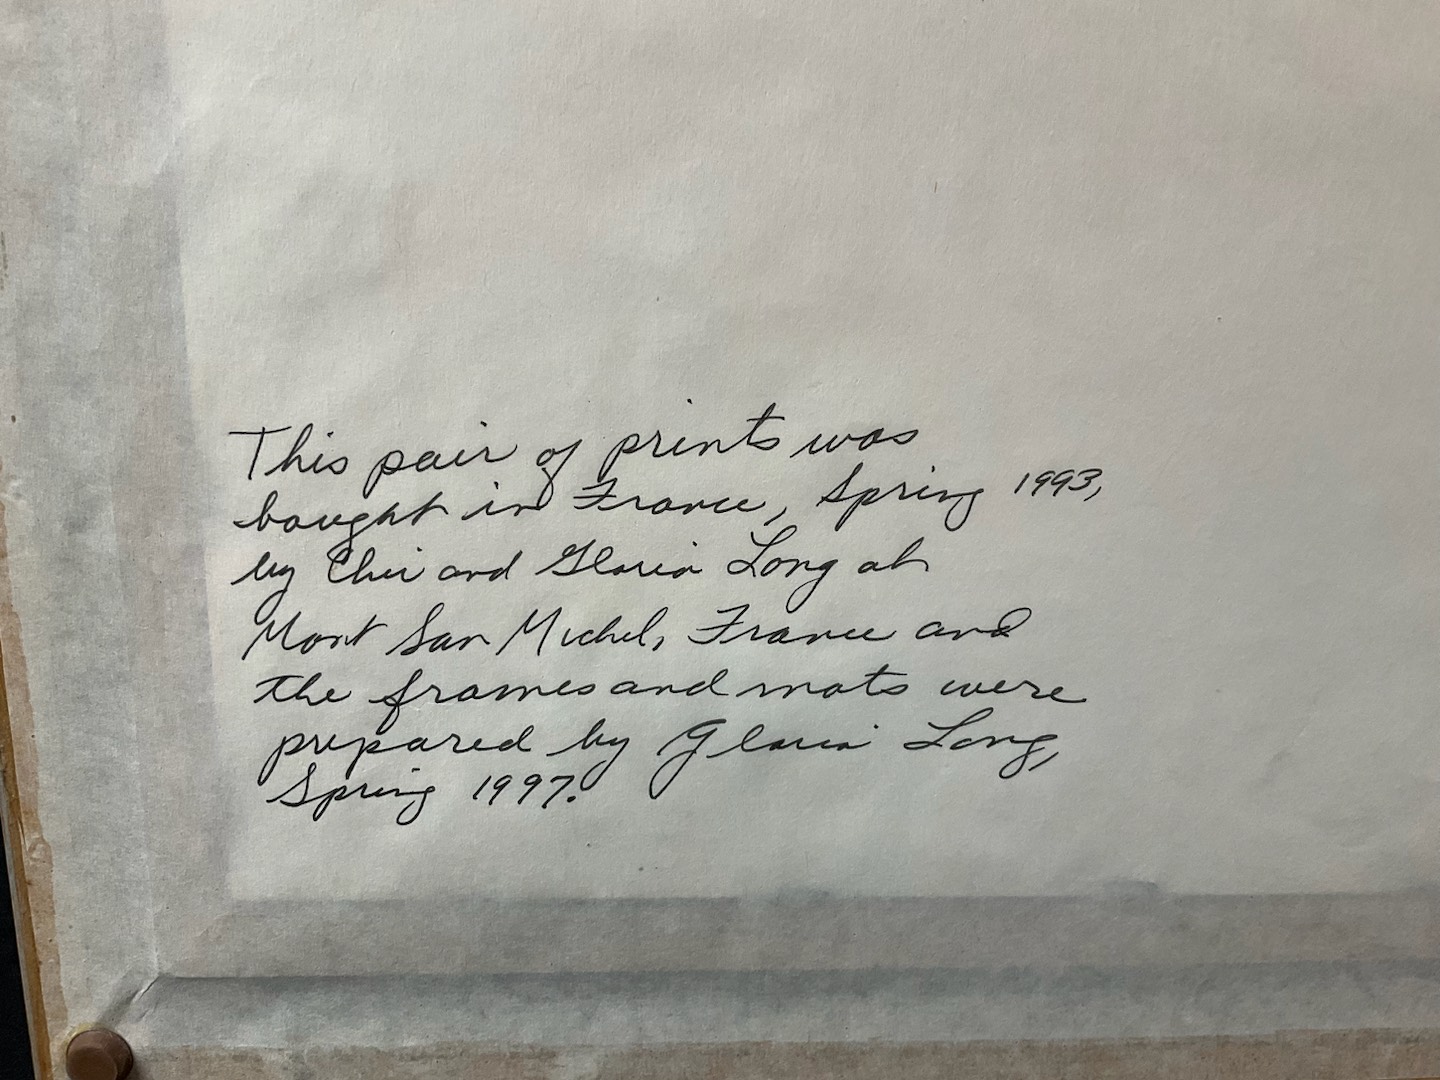 This pair of prints was
bought in France, Spring 1993,
by Chir and Gloria Long at
Mont San Michel, France and
the frames and mats were
prepared by Gloria Long,
Spring 1997.